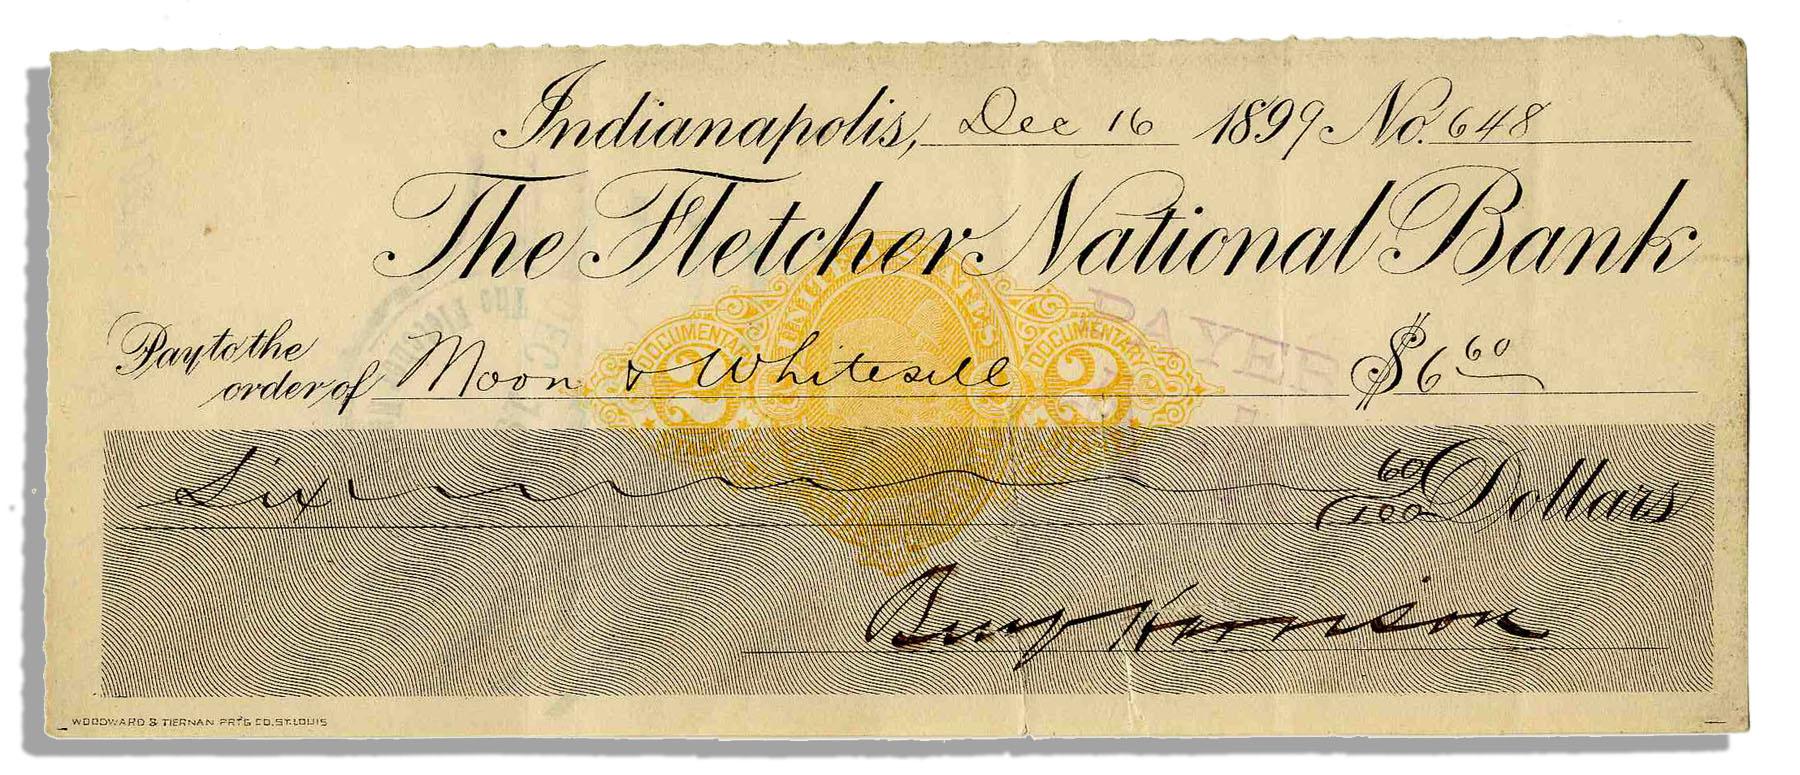 Indianapolis, Dec 16 1899 No. 648
The Fletcher National Bank
UNITED STATES
DOCUMENTARY DOCUMENTARY
PAYER
Pay to the
order of Moon & Whitesell $6 60
2 2
Six 60/100 Dollars
Benj Harrison
WOODWARD & TIERNAN PRT'G CO. ST. LOUIS